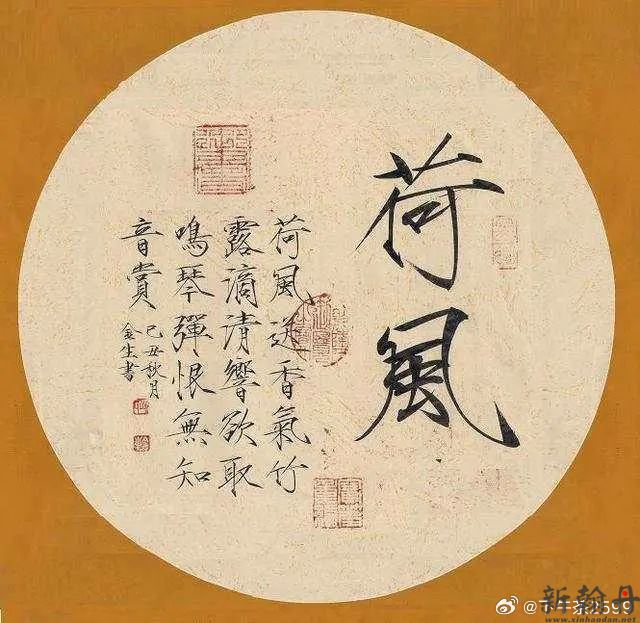 荷風
荷風送香氣竹
露滴清響欲取
鳴琴彈恨無知
音賞
己丑秋月
金生書
新翰丹
www.xinhaodan.net